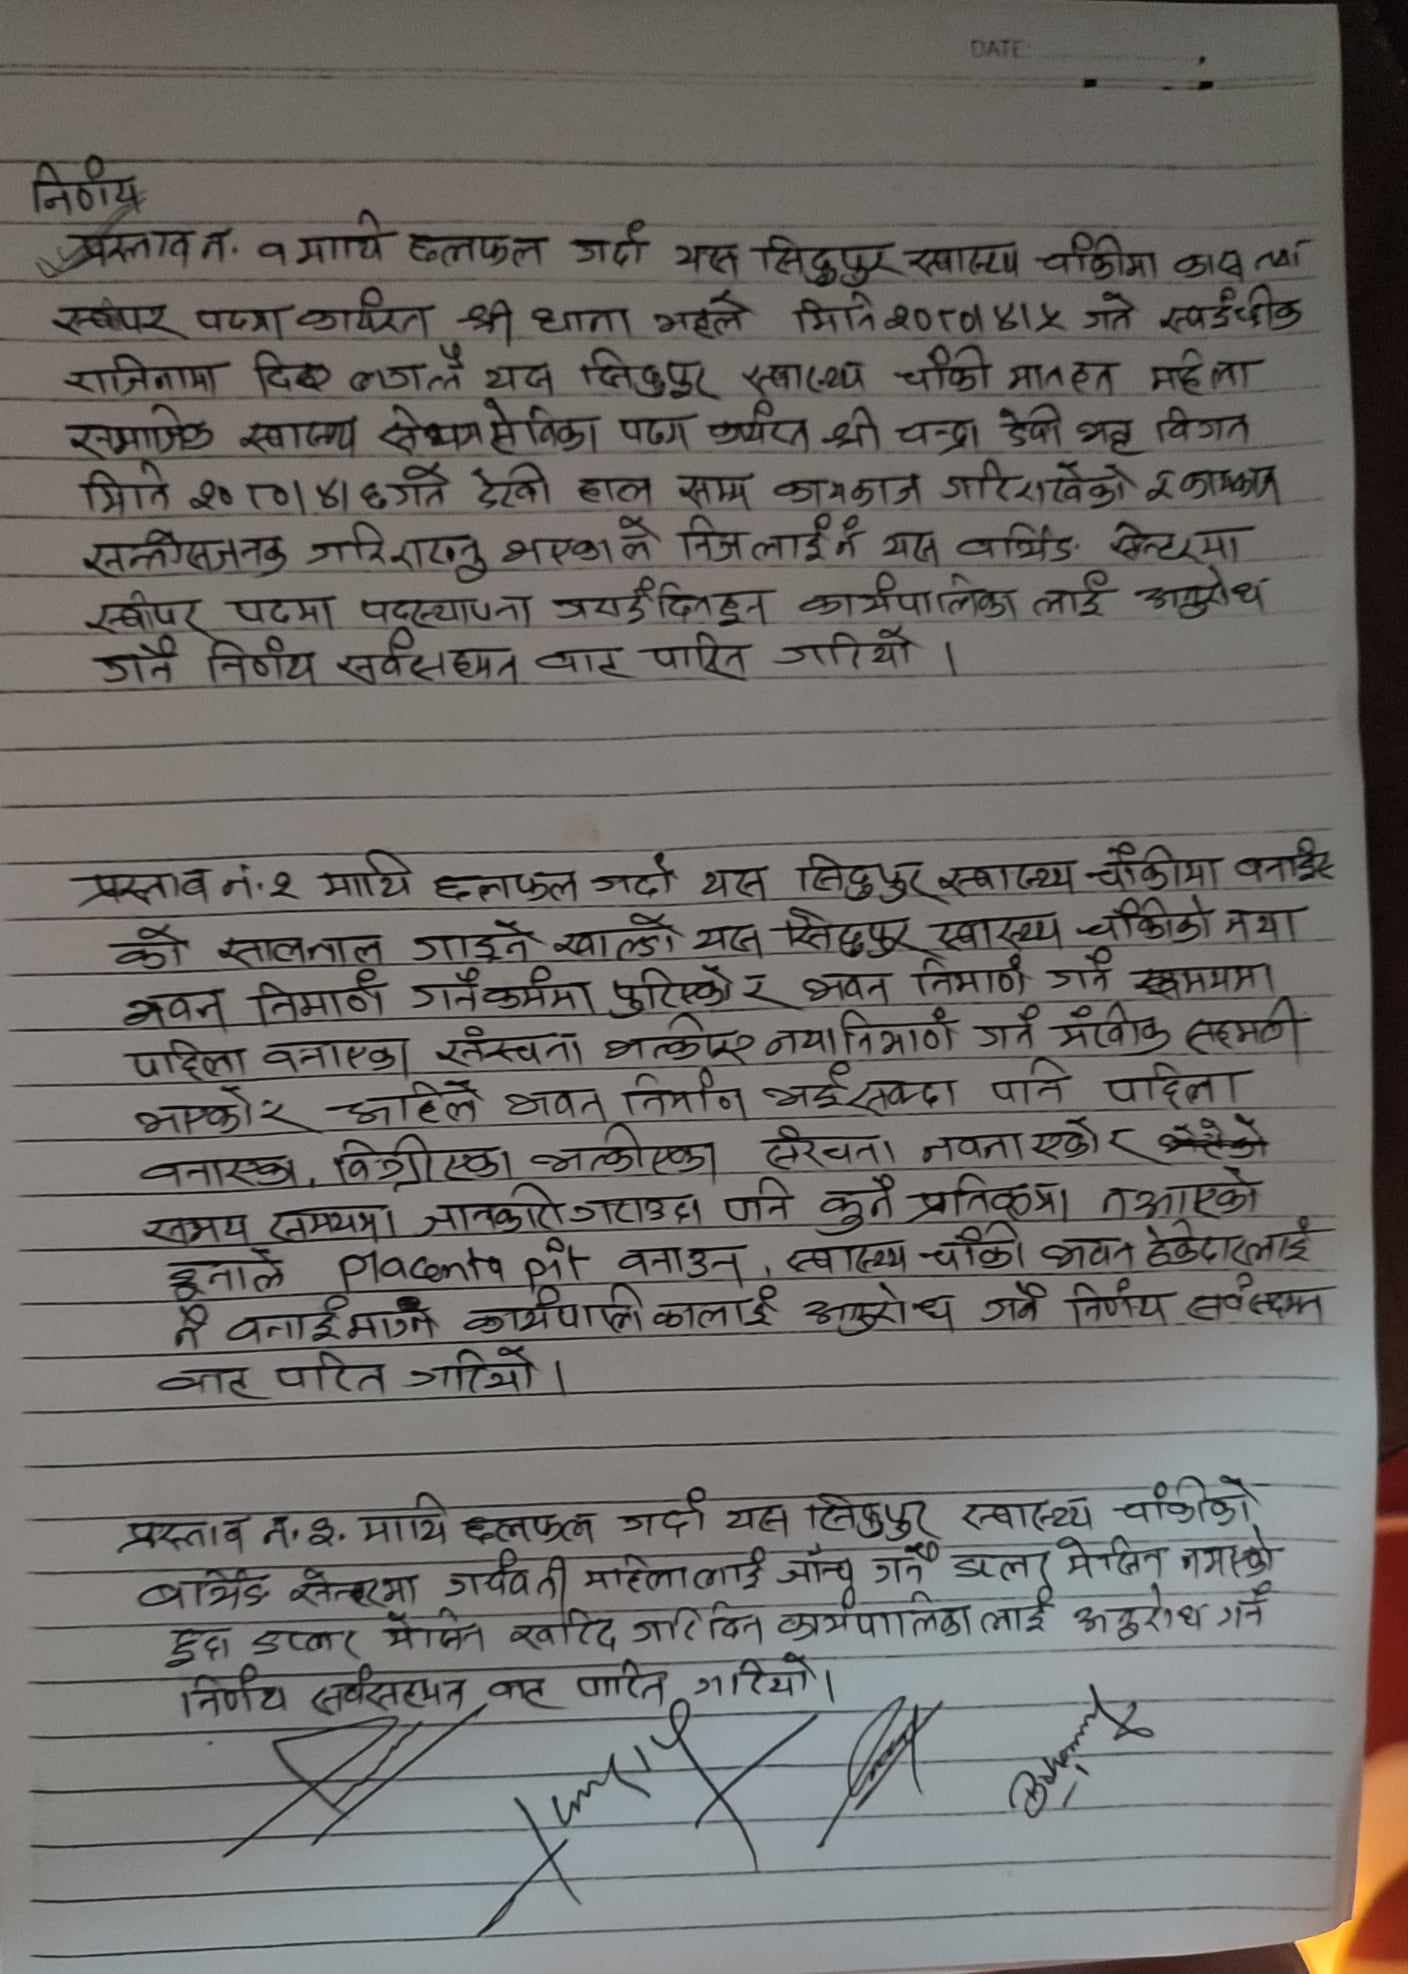 DATE
निर्णय
प्रस्ताव नं. १ माथि छलफल गर्दा यस सिद्धपुर स्वास्थ्य चौकीमा का.स तथा
स्वीपर पदमा कार्यरत श्री धाना भट्टले मिति २०८०।४।५ गते स्वईच्छीक
राजिनामा दिइ यस सिद्धपुर स्वास्थ्य चौकी मातहत महिला
सामाजिक स्वास्थ्य सेविका पदमा कार्यरत श्री चन्द्रा देवी भट्ट विगत
मिति २०८०।४।६ गते देखी हाल सम्म कामकाज गरिराखेको र कामकाज
सन्तोसजनक गरिराख्नु भएकाले निजलाई नै यस बर्थिङ सेन्टरमा
स्वीपर पदमा पदस्थापना गराईदिनहुन कार्यपालिका लाई अनुरोध
गर्ने निर्णय सर्वसहमत बाट पारित गरियो ।
प्रस्ताव नं. २ माथि छलफल गर्दा यस सिद्धपुर स्वास्थ्य चौकीमा बनाईए
को सालनाल गाड्ने खाल्डो यस सिद्धपुर स्वास्थ्य चौकीको नया
भवन निमार्ण गर्नेक्रममा फुटिएको र भवन निमार्ण गर्ने समयमा
पाहिला बनाएका संरचना भत्कीए नया निमार्ण गर्ने मौखीक सहमती
भएको र अहिले भवन निर्माण भईसक्दा पनि पाहिला
बनाएका, विग्रीएका भत्कीएका संरचना नबनाएको र
समय समयमा जानकारी गराउदा पनि कुनै प्रतिक्रया नआएको
हुनाले placenta pit बनाउन, स्वास्थ्य चौकी भवन ठेकेदारलाई
नै बनाईमाग्ने कार्यपालीकालाई अनुरोध गर्ने निर्णय सर्वसहमत
बाट पारित गरियो ।
प्रस्ताव नं. ३. माथि छलफल गर्दा यस सिद्धपुर स्वास्थ्य चौकीको
बर्थिङ सेन्टरमा गर्यवती माहिलालाई जाँच गर्ने डप्लर मेसिन नभएको
हुदा डप्लर मेसिन खरिद गरिदिन कार्यपालिका लाई अनुरोध गर्ने
निर्णय सर्वसहमत बाट पारित गरियो ।